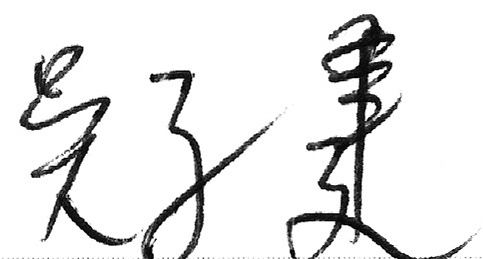 吴子建